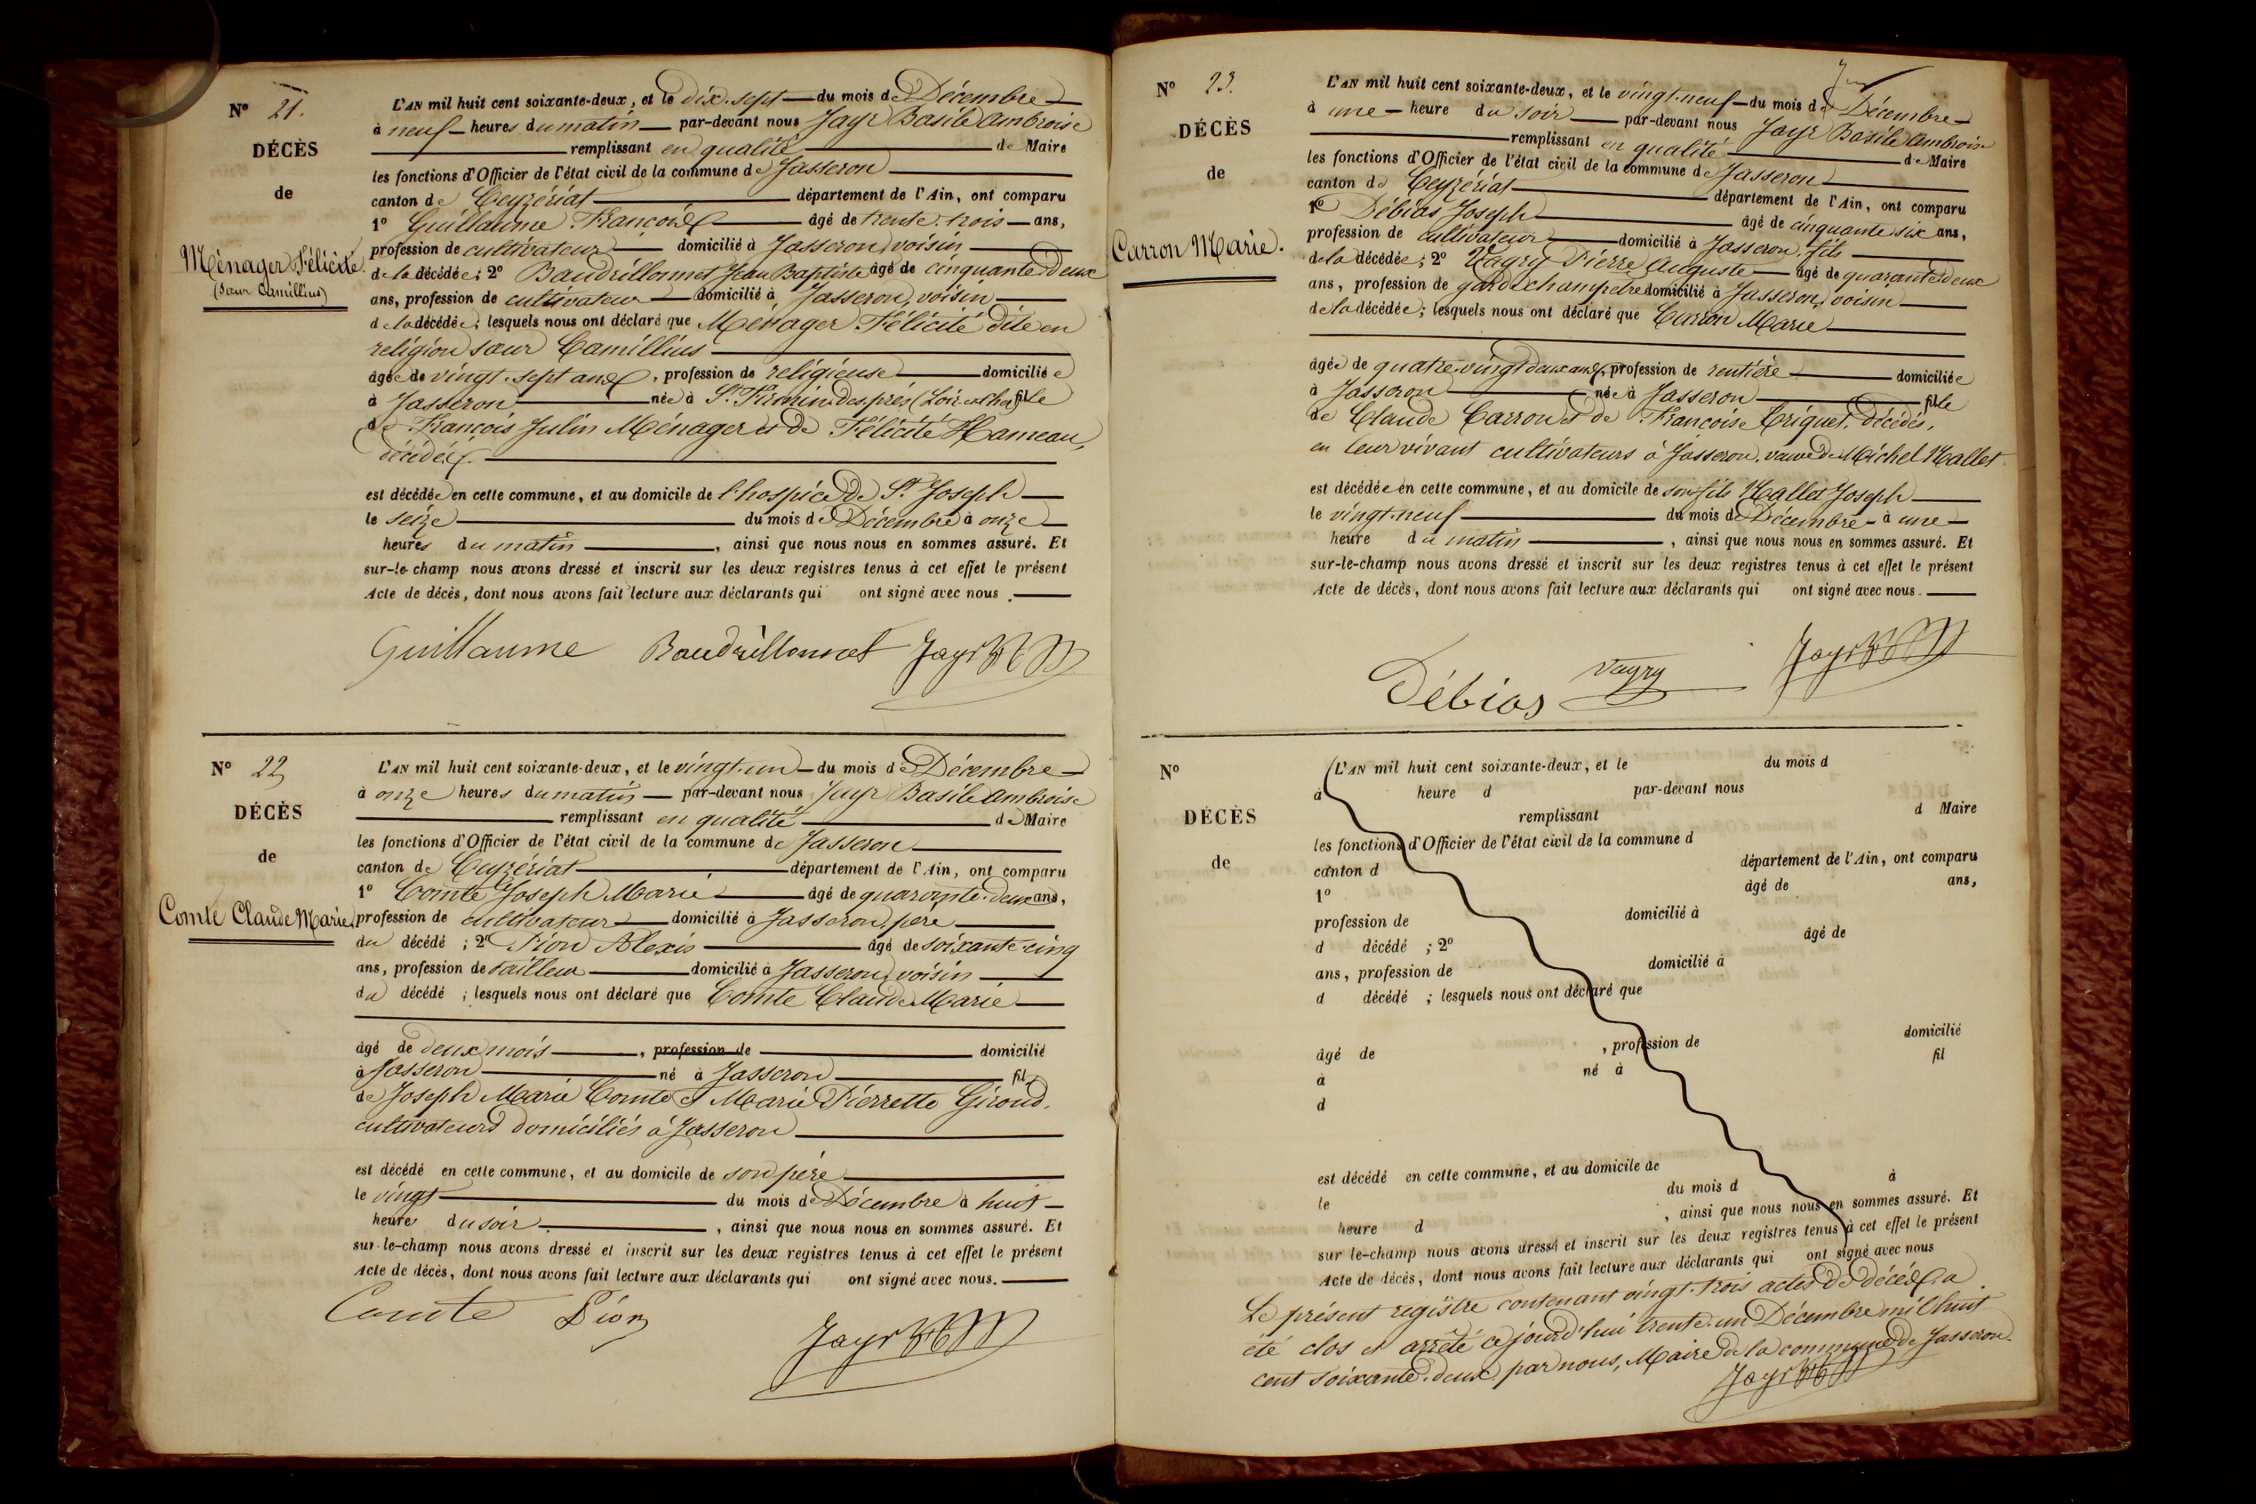 N° 21.
DÉCÈS
de
Ménager Félicité
(Sœur Camillius)
L'AN mil huit cent soixante-deux, et le dix-sept du mois de Décembre
à neuf heures du matin par-devant nous Jayr Basile Ambroise
remplissant en qualité de Maire
les fonctions d'Officier de l'état civil de la commune de Jasseron
canton de Ceyzériat département de l'Ain, ont comparu
1° Guillaume François âgé de trente-trois ans,
profession de cultivateur domicilié à Jasseron, voisin
de la décédée; 2° Baudrillonnet Jean Baptiste âgé de cinquante-deux
ans, profession de cultivateur domicilié à Jasseron, voisin
de la décédée; lesquels nous ont déclaré que Ménager Félicité dite en
religion sœur Camillius
âgée de vingt-sept ans, profession de religieuse domiciliée
à Jasseron née à St. Firmin des prés (Loir et Cher) fille
de François Julin Ménager et de Félicité Hameau,
décédés.
est décédée en cette commune, et au domicile de l'hospice de St. Joseph
le seize du mois de Décembre à onze
heures du matin, ainsi que nous nous en sommes assuré. Et
sur-le-champ nous avons dressé et inscrit sur les deux registres tenus à cet effet le présent
Acte de décès, dont nous avons fait lecture aux déclarants qui ont signé avec nous.
Guillaume Baudrillonnet Jayr
N° 22
DÉCÈS
de
Comte Claude Marie
L'AN mil huit cent soixante-deux, et le vingt-un du mois de Décembre
à onze heures du matin par-devant nous Jayr Basile Ambroise
remplissant en qualité de Maire
les fonctions d'Officier de l'état civil de la commune de Jasseron
canton de Ceyzériat département de l'Ain, ont comparu
1° Comte Joseph Marie âgé de quarante-deux ans,
profession de cultivateur domicilié à Jasseron, père
du décédé; 2° Pion Alexis âgé de soixante-cinq
ans, profession de tailleur domicilié à Jasseron, voisin
du décédé; lesquels nous ont déclaré que Comte Claude Marie
âgé de deux mois, profession de domicilié
à Jasseron né à Jasseron fils
de Joseph Marie Comte et Marie Pierrette Giroud,
cultivateurs domiciliés à Jasseron
est décédé en cette commune, et au domicile de son père
le vingt du mois de Décembre à huit
heures du soir, ainsi que nous nous en sommes assuré. Et
sur-le-champ nous avons dressé et inscrit sur les deux registres tenus à cet effet le présent
Acte de décès, dont nous avons fait lecture aux déclarants qui ont signé avec nous.
Comte Pion Jayr
N° 23.
DÉCÈS
de
Carron Marie.
L'AN mil huit cent soixante-deux, et le vingt-neuf du mois de Décembre
à une heure du soir par-devant nous Jayr Basile Ambroise
remplissant en qualité de Maire
les fonctions d'Officier de l'état civil de la commune de Jasseron
canton de Ceyzériat département de l'Ain, ont comparu
1° Débias Joseph âgé de cinquante six ans,
profession de cultivateur domicilié à Jasseron, fils
de la décédée; 2° Vagry Pierre Auguste âgé de quarante-deux
ans, profession de garde champêtre domicilié à Jasseron, voisin
de la décédée; lesquels nous ont déclaré que Carron Marie
âgée de quatre-vingt deux ans, profession de rentière domiciliée
à Jasseron née à Jasseron fille
de Claude Carron et de Françoise Criquet, décédés,
en leur vivant cultivateurs à Jasseron, veuve de Michel Mallet
est décédée en cette commune, et au domicile de son fils Mallet Joseph
le vingt-neuf du mois de Décembre à une
heure du matin, ainsi que nous nous en sommes assuré. Et
sur-le-champ nous avons dressé et inscrit sur les deux registres tenus à cet effet le présent
Acte de décès, dont nous avons fait lecture aux déclarants qui ont signé avec nous.
Débias Vagry Jayr
N°
DÉCÈS
de
L'AN mil huit cent soixante-deux, et le du mois d
à heure d par-devant nous
remplissant d Maire
les fonctions d'Officier de l'état civil de la commune d
canton d département de l'Ain, ont comparu
1° âgé de ans,
profession de domicilié à
d décédé ; 2° âgé de
ans, profession de domicilié à
d décédé ; lesquels nous ont déclaré que
âgé de , profession de domicilié
à né à fil
d
est décédé en cette commune, et au domicile de
le du mois d à
heure d , ainsi que nous nous en sommes assuré. Et
sur le-champ nous avons dressé et inscrit sur les deux registres tenus à cet effet le présent
Acte de décès, dont nous avons fait lecture aux déclarants qui ont signé avec nous
Le présent registre contenant vingt-trois actes de décès, a
été clos et arrêté ce jourd'hui trente-un Décembre mil huit
cent soixante-deux par nous, Maire de la commune de Jasseron.
Jayr